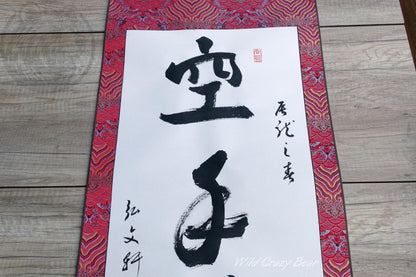 空手
辰龙之春
弘文轩
Wild Crazy Bear